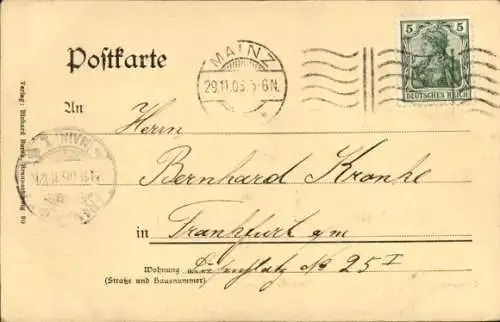 Postkarte
MAINZ
29.11.05. 5-6 N.
5 5
DEUTSCHES REICH
An
Herrn
Bernhard Kranke
in Frankfurt a/m
Wohnung No 25 I
(Straße und Hausnummer)
Verlag: Richard